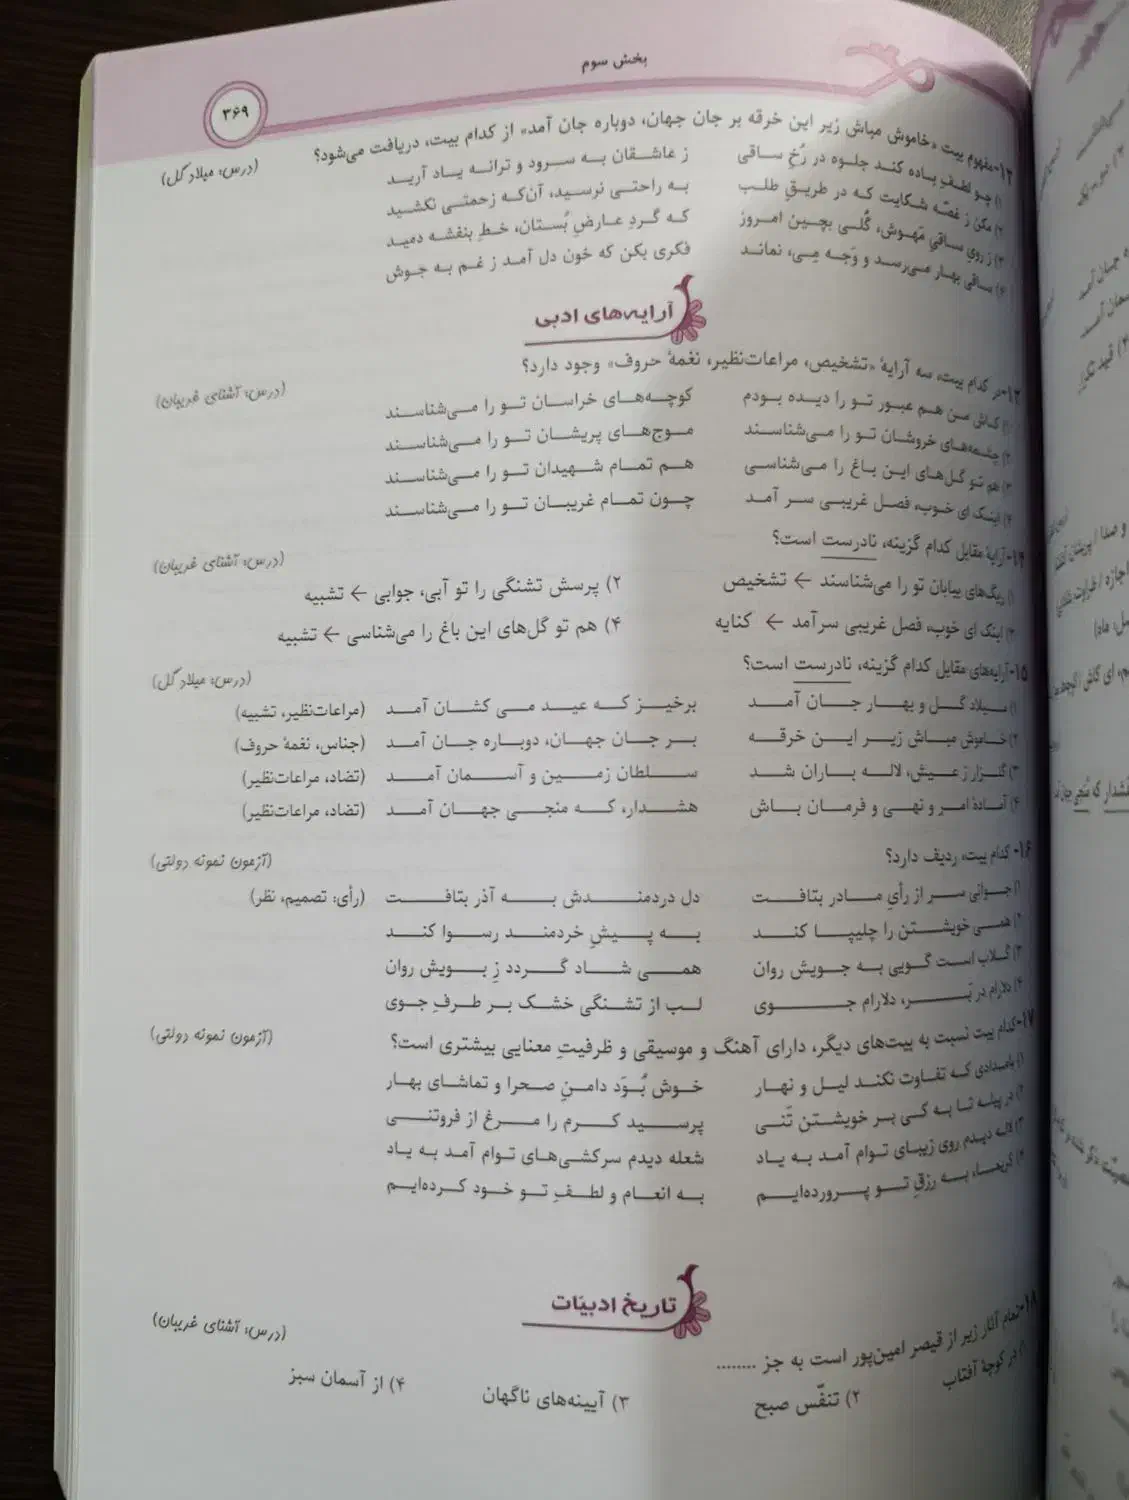 بخش سوم
۳۶۹
۱۲-مفهوم بیت «خاموش مباش زیر این خرقه بر جان جهان، دوباره جان آمد» از کدام بیت، دریافت می‌شود؟ (درس: میلاد گل)
۱) چو لطفِ باده کند جلوه در رُخِ ساقی ز عاشقان به سرود و ترانه یاد آرید
۲) مکن ز غصّه شکایت که در طریقِ طلب به راحتی نرسید، آن‌که زحمتی نکشید
۳) ز رویِ ساقیِ مَهوش، گُلی بچین امروز که گردِ عارضِ بُستان، خطِ بنفشه دمید
۴) ساقی بهار می‌رسد و وَجه مِی، نماند فکری بکن که خون دل آمد ز غم به جوش
آرایه‌های ادبی
۱۳-در کدام بیت، سه آرایهٔ «تشخیص، مراعات‌نظیر، نغمهٔ حروف» وجود دارد؟ (درس: آشنای غریبان)
۱) کاش من هم عبور تو را دیده بودم کوچه‌های خراسان تو را می‌شناسند
۲) چشمه‌های خروشان تو را می‌شناسند موج‌های پریشان تو را می‌شناسند
۳) هم تو گل‌های این باغ را می‌شناسی هم تمام شهیدان تو را می‌شناسند
۴) اینک ای خوب، فصل غریبی سر آمد چون تمام غریبان تو را می‌شناسند
۱۴-آرایهٔ مقابل کدام گزینه، نادرست است؟ (درس: آشنای غریبان)
۱) ریگ‌های بیابان تو را می‌شناسند ← تشخیص ۲) پرسش تشنگی را تو آبی، جوابی ← تشبیه
۳) اینک ای خوب، فصل غریبی سرآمد ← کنایه ۴) هم تو گل‌های این باغ را می‌شناسی ← تشبیه
۱۵-آرایه‌های مقابل کدام گزینه، نادرست است؟ (درس: میلاد گل)
۱) میلاد گل و بهار جان آمد برخیز که عید می کشان آمد (مراعات‌نظیر، تشبیه)
۲) خاموش مباش زیر این خرقه بر جان جهان، دوباره جان آمد (جناس، نغمهٔ حروف)
۳) گلزار ز عیش، لاله باران شد سلطان زمین و آسمان آمد (تضاد، مراعات‌نظیر)
۴) آمادهٔ امر و نهی و فرمان باش هشدار، که منجی جهان آمد (تضاد، مراعات‌نظیر)
۱۶- کدام بیت، ردیف دارد؟ (آزمون نمونه دولتی)
۱) جوانی سر از رأیِ مادر بتافت دل دردمندش به آذر بتافت (رأی: تصمیم، نظر)
۲) همی خویشتن را چلیپا کند به پیشِ خردمند رسوا کند
۳) گلاب است گویی به جویش روان همی شاد گردد زِ بویش روان
۴) دلارام در بَر، دلارام جوی لب از تشنگی خشک بر طرفِ جوی
۱۷-کدام بیت نسبت به بیت‌های دیگر، دارای آهنگ و موسیقی و ظرفیتِ معنایی بیشتری است؟ (آزمون نمونه دولتی)
۱) بامدادی که تفاوت نکند لیل و نهار خوش بُوَد دامنِ صحرا و تماشای بهار
۲) در پیله تا به کی بر خویشتن تَنی پرسید کرم را مرغ از فروتنی
۳) لاله دیدم روی زیبای توام آمد به یاد شعله دیدم سرکشی‌های توام آمد به یاد
۴) کریما، به رزقِ تو پرورده‌ایم به انعام و لطفِ تو خود کرده‌ایم
تاریخ ادبیّات
۱۸-تمام آثار زیر از قیصر امین‌پور است به جز ........ (درس: آشنای غریبان)
۱) در کوچهٔ آفتاب ۲) تنفّس صبح ۳) آیینه‌های ناگهان ۴) از آسمان سبز